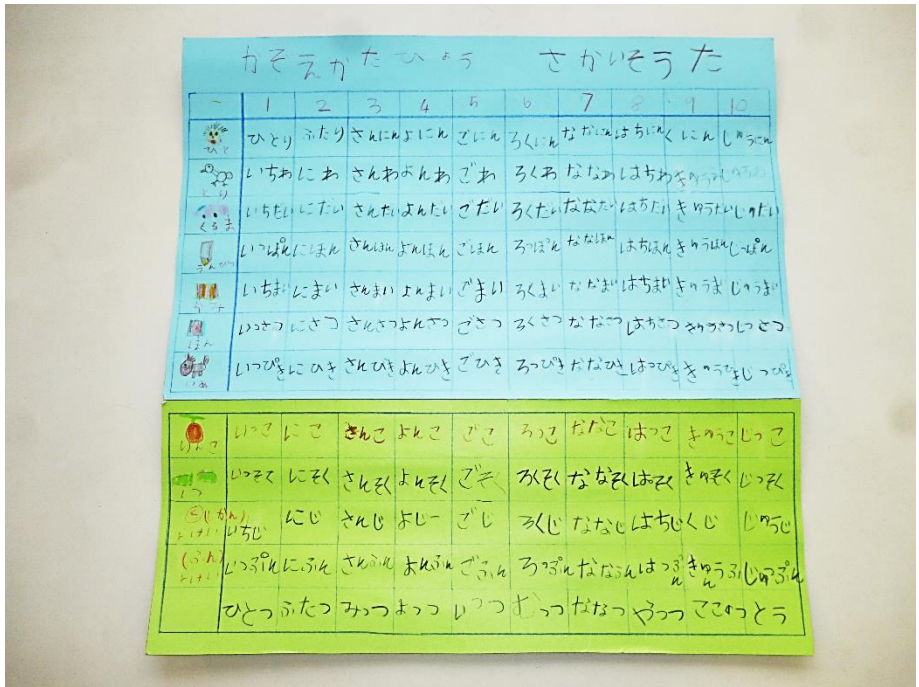 かぞえかたひょう さかいそうた
1 2 3 4 5 6 7 8 9 10
ひと ひとり ふたり さんにん よにん ごにん ろくにん ななにん はちにん くにん じゅうにん
とり いちわ にわ さんわ よんわ ごわ ろくわ ななわ はちわ きゅうわ
くるま いちだい にだい さんだい よんだい ごだい ろくだい ななだい はちだい きゅうだい じゅだい
えんぴつ いっぽん にほん さんほん よんほん ごほん ろっぽん ななほん はちほん きゅうほん じっぽん
いちまい にまい さんまい よんまい ごまい ろくまい ななまい はちまい きゅうまい じゅうまい
ほん いっさつ にさつ さんさつ よんさつ ごさつ ろくさつ ななさつ はちさつ きゅうさつ じっさつ
いぬ いっぴき にひき さんびき よんひき ごひき ろっぴき ななひき はっぴき きゅうひき じっぴき
りんご いっこ にこ さんこ よんこ ごこ ろっこ ななこ はっこ きゅうこ じっこ
くつ いっそく にそく さんそく よんそく ごそく ろくそく ななそく はっそく きゅそく じっそく
(じかん) とけい いちじ にじ さんじ よじ ごじ ろくじ ななじ はちじ くじ じゅうじ
(ふん) とけい いっぷん にふん さんふん よんふん ごふん ろっぷん ななふん はっぷん きゅうふん じゅっぷん
ひとつ ふたつ みっつ よっつ いつつ むっつ ななつ やっつ ここのつ とう